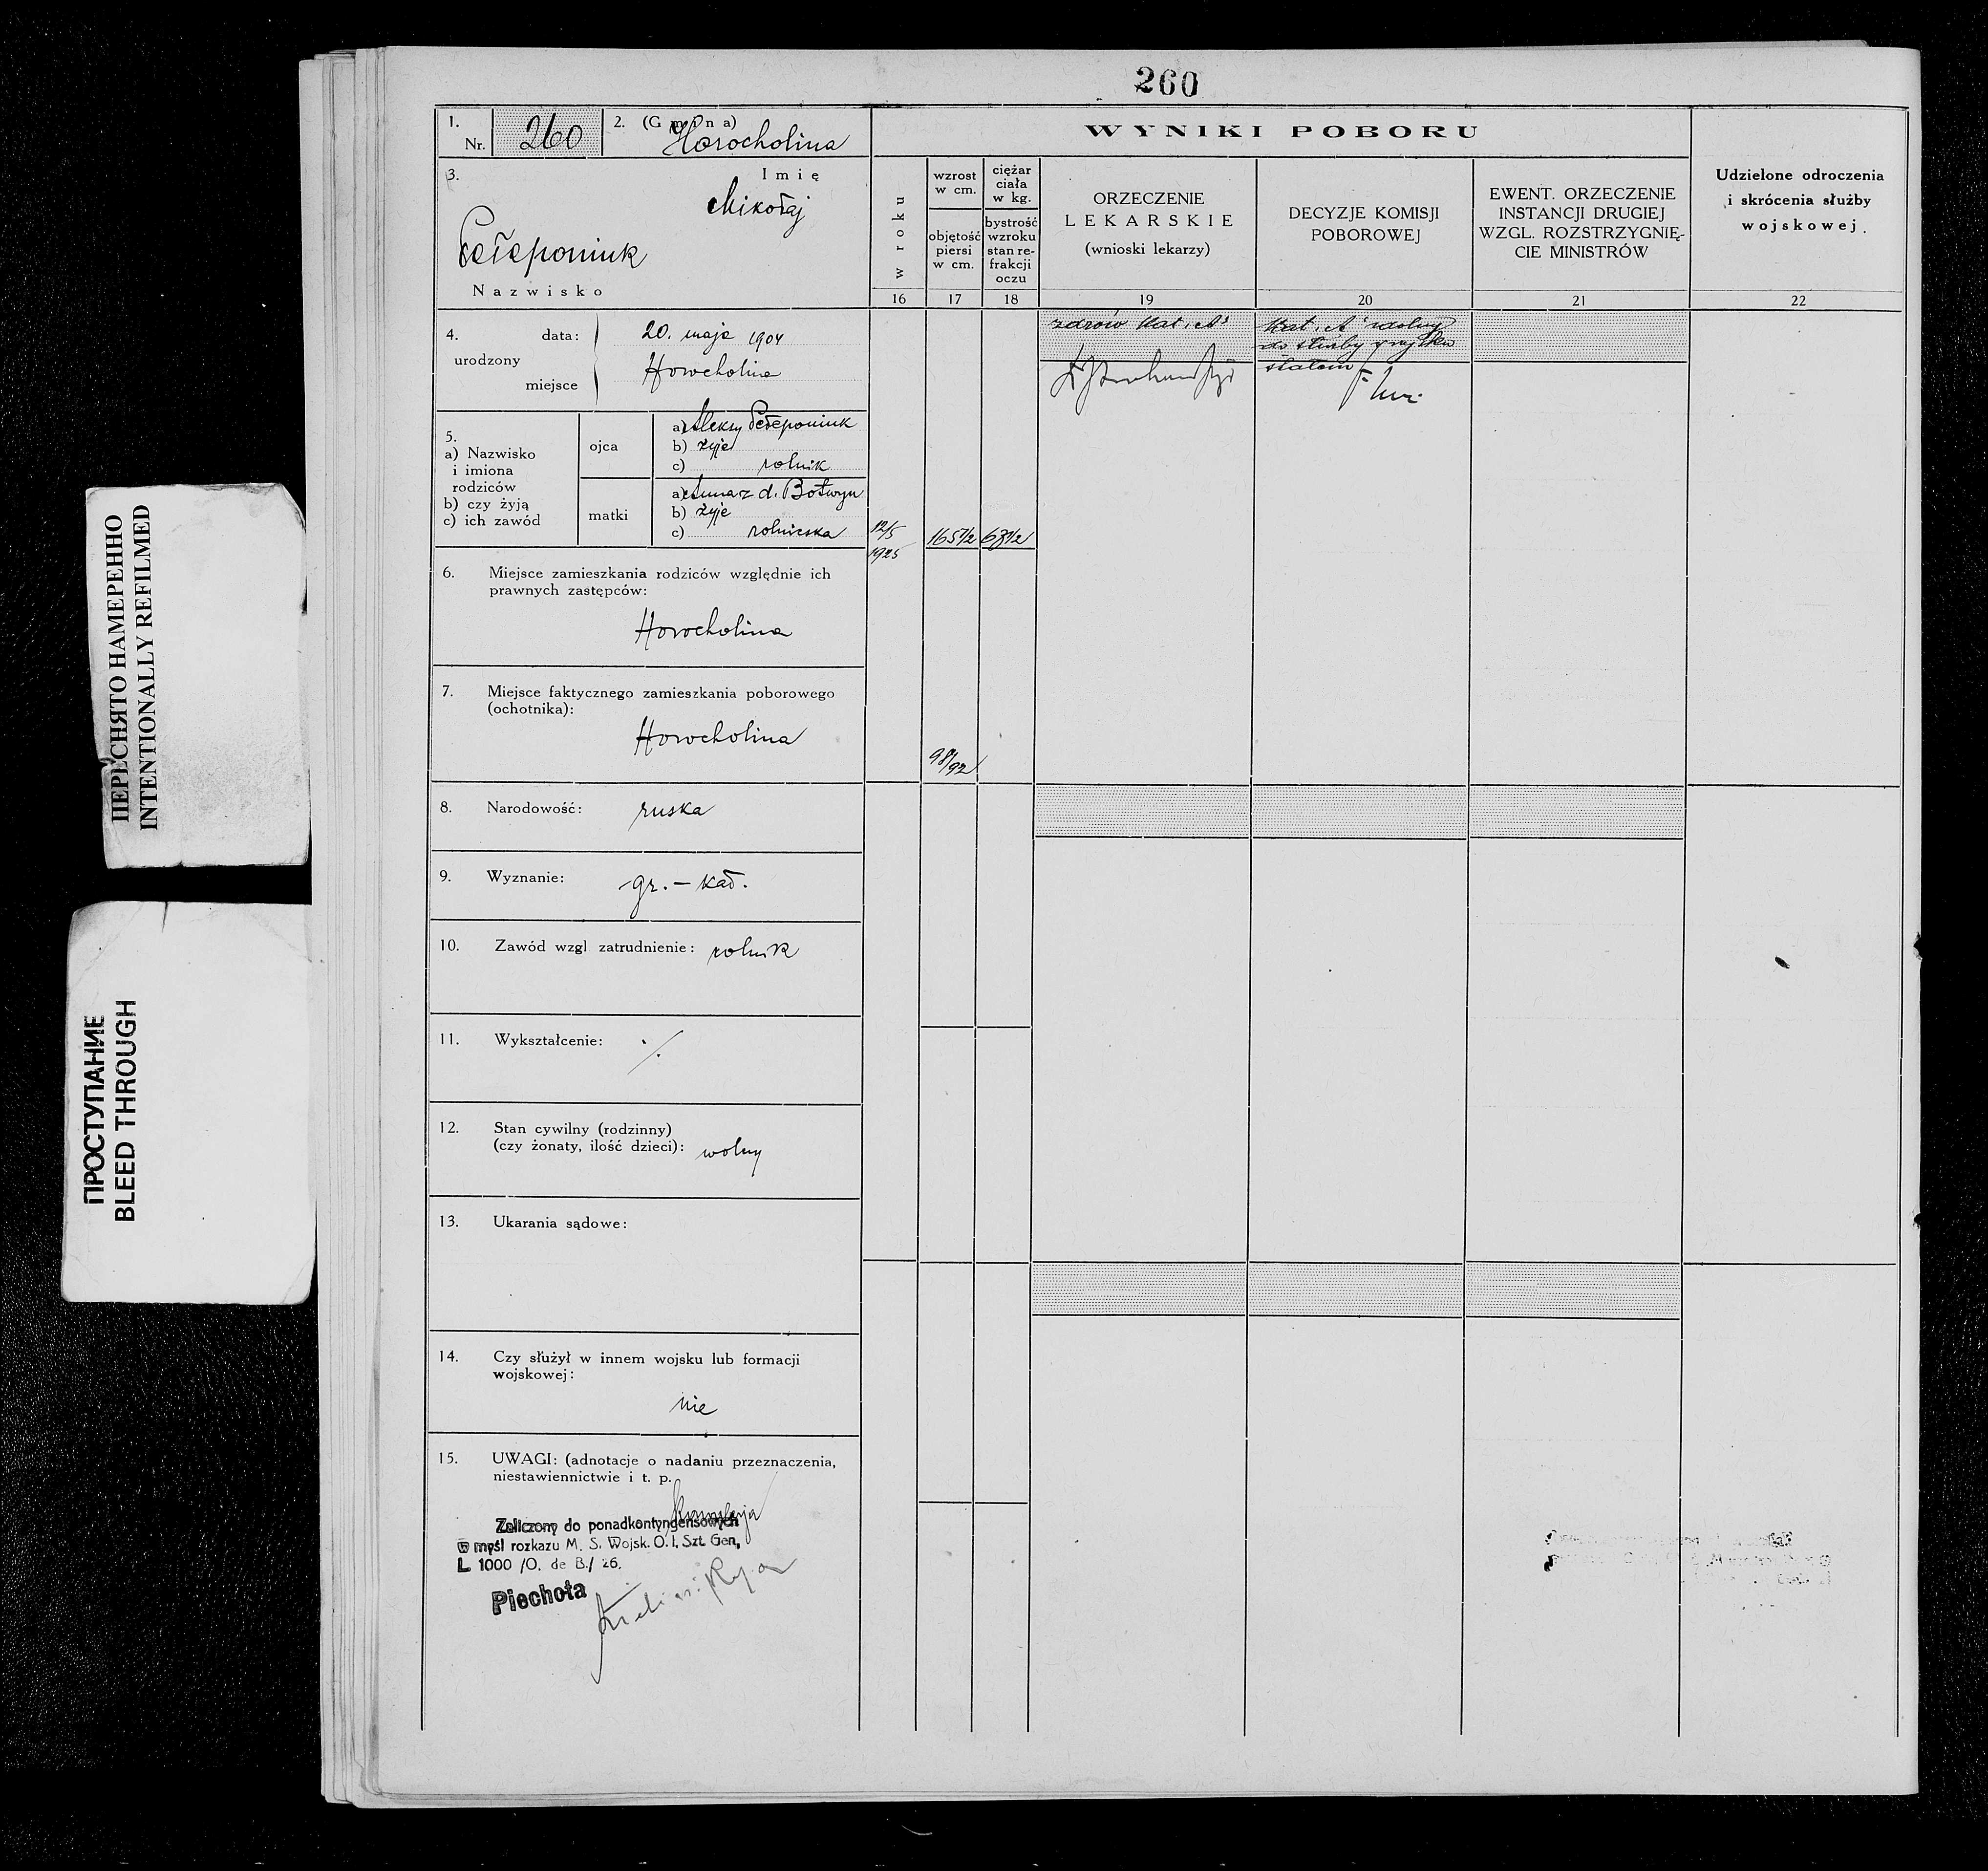 260
1.
Nr. 260
2. (Gmina)
Horocholina
WYNIKI POBORU
3.
Imię
Mikołaj
Pełeponiuk
Nazwisko
w roku
wzrost
w cm.
objętość
piersi
w cm.
ciężar
ciała
w kg.
bystrość
wzroku
stan re-
frakcji
oczu
ORZECZENIE
LEKARSKIE
(wnioski lekarzy)
DECYZJE KOMISJI
POBOROWEJ
EWENT. ORZECZENIE
INSTANCJI DRUGIEJ
WZGL. ROZSTRZYGNIĘ-
CIE MINISTRÓW
Udzielone odroczenia
i skrócenia służby
wojskowej.
16 17 18 19 20 21 22
4.
urodzony
data: 20. maja 1904
miejsce Horocholina
zdrów Kat. "A"
Kat. "A" zdolny
do służby wojsku
stałem
5.
a) Nazwisko
i imiona
rodziców
b) czy żyją
c) ich zawód
ojca
a) Aleksy Pełeponiuk
b) żyje
c) rolnik
matki
a) Anna z d. Botwyn
b) żyje
c) rolniczka
12/5
1925
165 1/2
63 1/2
98/92
6. Miejsce zamieszkania rodziców względnie ich
prawnych zastępców:
Horocholina
7. Miejsce faktycznego zamieszkania poborowego
(ochotnika):
Horocholina
8. Narodowość: ruska
9. Wyznanie: gr. - kat.
10. Zawód wzgl zatrudnienie: rolnik
11. Wykształcenie: ·/.
12. Stan cywilny (rodzinny)
(czy żonaty, ilość dzieci): wolny
13. Ukarania sądowe:
14. Czy służył w innem wojsku lub formacji
wojskowej:
nie
15. UWAGI: (adnotacje o nadaniu przeznaczenia,
niestawiennictwie i t. p.
Zaliczony do ponadkontyngensowych
w myśl rozkazu M. S. Wojsk. O. I. Szt. Gen,
L 1000 /O. de B./ 26.
Piechota
ПЕРЕСНЯТО НАМЕРЕННО
INTENTIONALLY REFILMED
ПРОСТУПАНИЕ
BLEED THROUGH